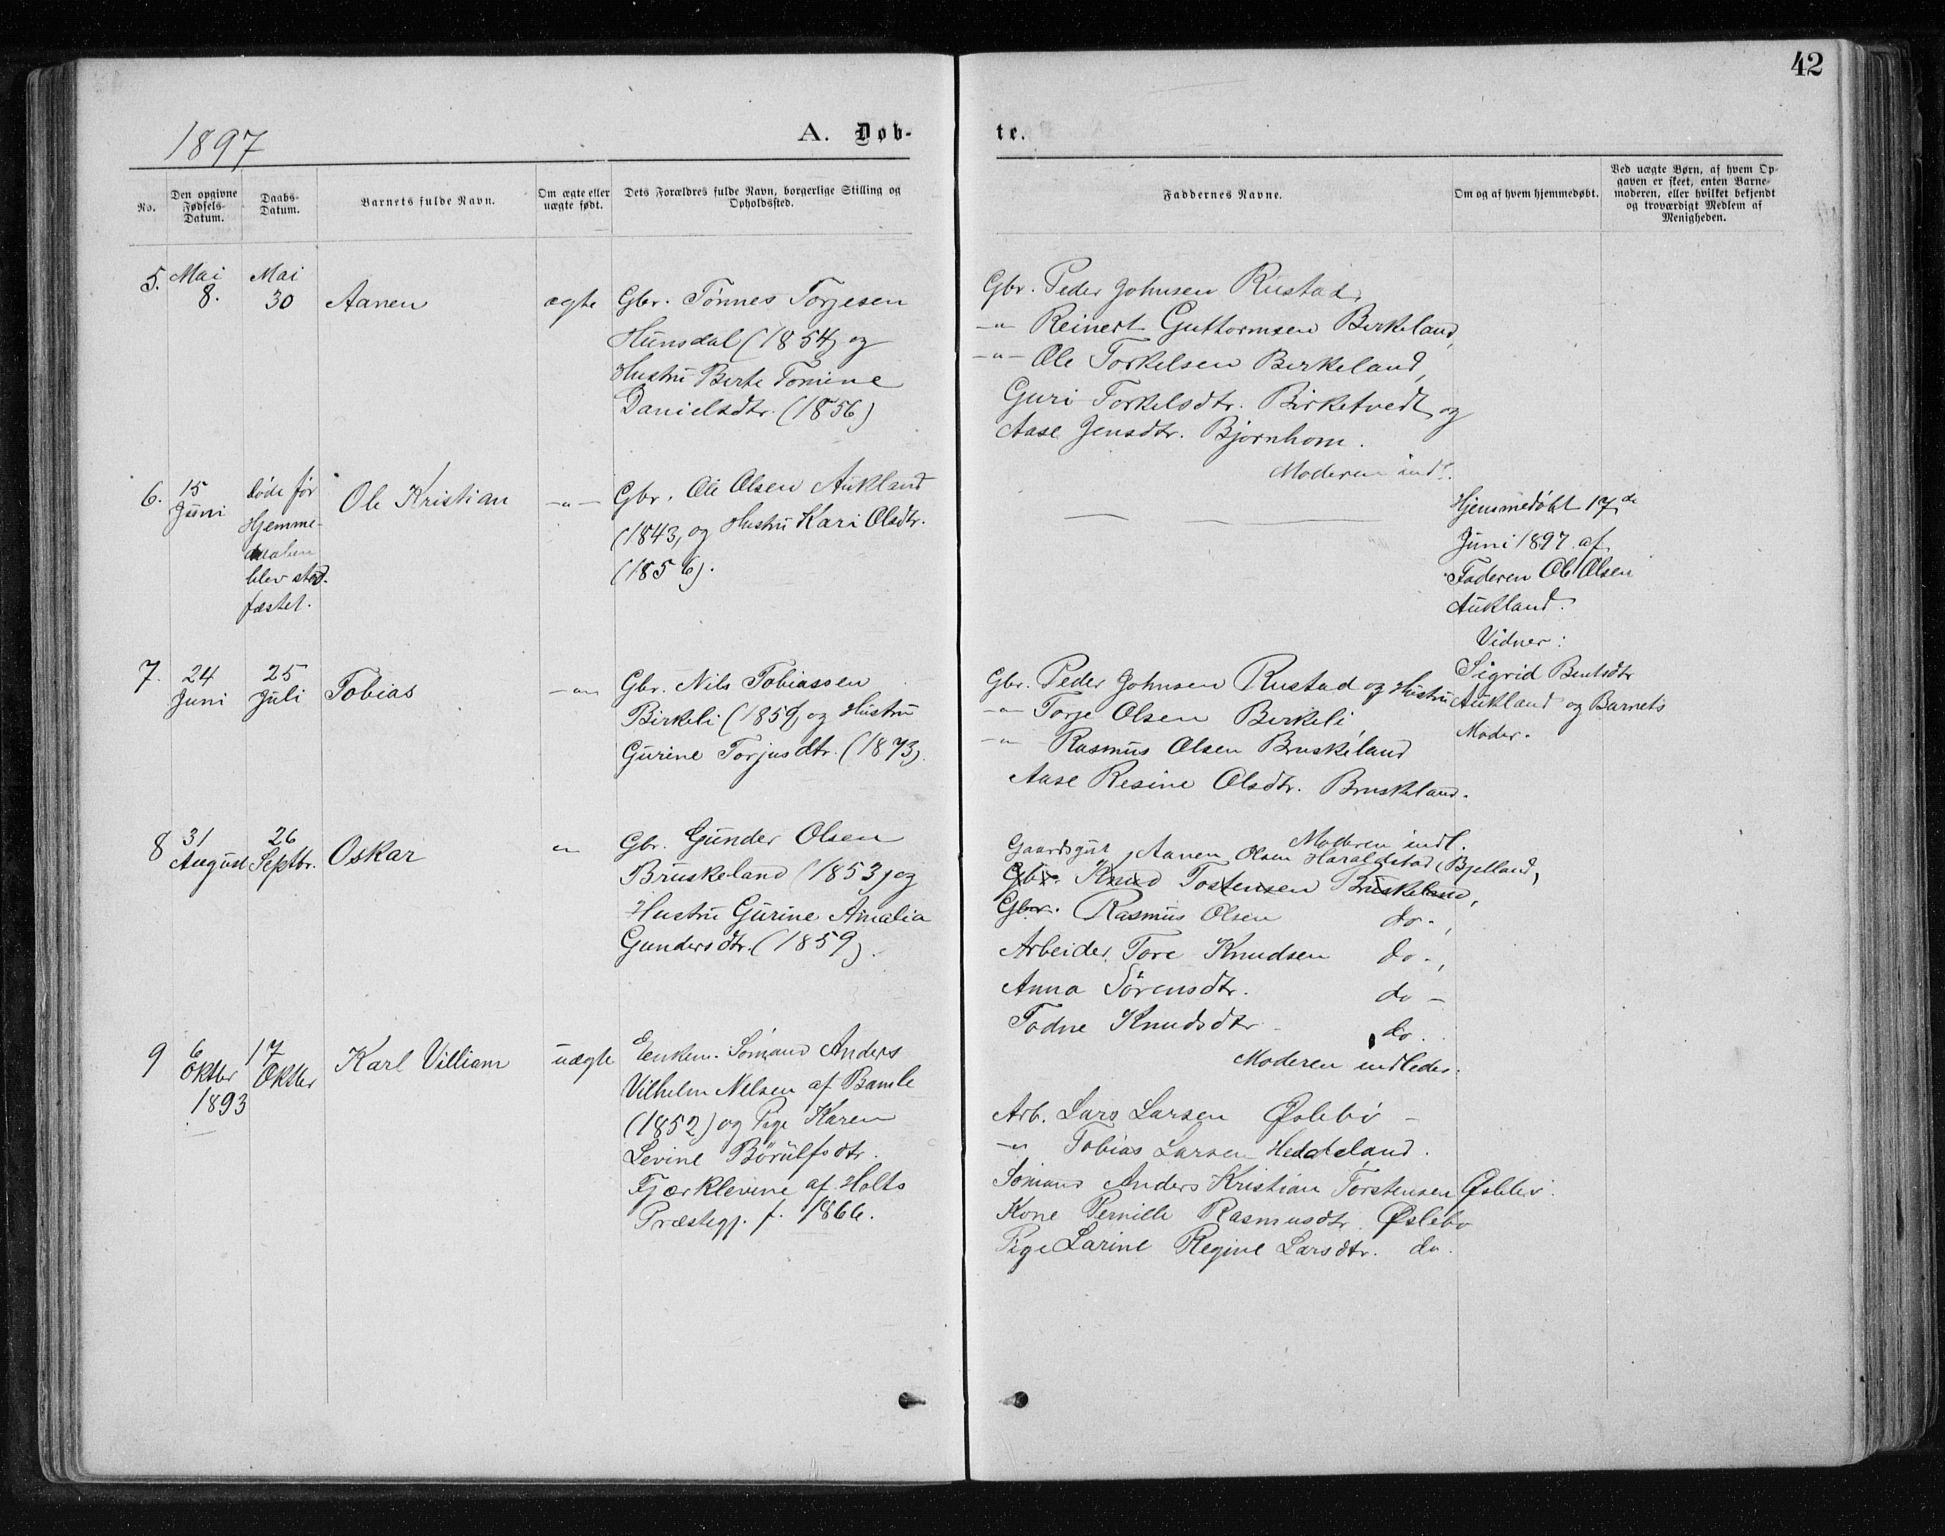 42
1897
A. Døb-
te.
No.
Den opgivne Fødsels-Datum.
Daabs-Datum.
Barnets fulde Navn.
Om ægte eller uægte født.
Dets Forældres fulde Navn, borgerlige Stilling og Opholdssted.
Faddernes Navne.
Om og af hvem hjemmedøbt.
Ved uægte Børn, af hvem Op-
gaven er skeet, enten Barne-
moderen, eller hvilket bekjendt
og troværdigt Medlem af
Menigheden.
5.
Mai
8.
Mai
30
Aanen
ægte
Gbr. Tønnes Torjesen
Hunsdal (1854) og
Hustru Berte Tomine
Danielsdtr. (1856)
Gbr. Peder Johnsen Rustad,
-"- Reinert Guttormsen Birkeland,
-"- Ole Torkelsen Birkeland,
Guri Torkelsdtr. Birketvedt og
Aase Jensdtr. Bjørnhom.
Moderen indl.
6.
15
Juni
Døde før
Hjemme-
daaben
blev stad-
fæstet.
Ole Kristian
-"-
Gbr. Ole Olsen Aukland
(1843) og Hustru Kari Olsdtr.
(1856).
Hjemmedøbt 17de
Juni 1897 af
Faderen Ole Olsen
Aukland.
Vidner:
Sigrid Bentsdtr
Aukland og Barnets
Moder.
7.
24
Juni
25
Juli
Tobias
-"-
Gbr. Nils Tobiassen
Birkeli (1859) og Hustru
Gurine Torjusdtr. (1873).
Gbr. Peder Johnsen Rustad og Hustru
-"- Torje Olsen Birkeli
-"- Rasmus Olsen Bruskeland
Aase Resine Olsdtr. Bruskeland.
Moderen indl.
8
31
August
26
Septbr.
Oskar
"
Gbr. Gunder Olsen
Bruskeland (1853) og
Hustru Gurine Amalia
Gundersdtr. (1859).
Gaardsgut Aanen Olsen Haraldstad, Bjelland,
Gbr. Knud Tostensen Bruskeland,
Gbr. Rasmus Olsen do.,
Arbeider Tore Knudsen do.,
Anna Sørensdtr. do -
Todne Knudsdtr - do.
Moderen indledes.
9
6
Oktbr
1893
17
Oktbr
Karl Villiam
uægte
Enkem. Sømand Anders
Vilhelm Nelsen af Bamle
(1852) og Pige Karen
Levine Børulfsdtr.
Fjærklevene af Holts
Præstegj. f. 1866.
Arb. Lars Larsen Øslebø -
-"- Tobias Larsen Heddeland.
Sømand Anders Kristian Torstensen Øslebø.
Kone Pernille Rasmusdtr. Øslebø
Pige Larine Regine Larsdtr. do.